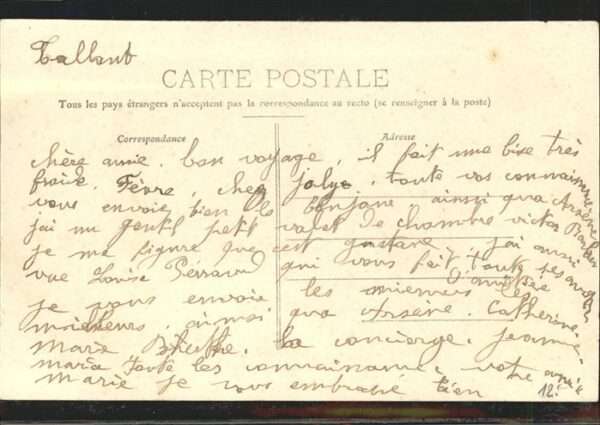 Tallant
CARTE POSTALE
Tous les pays étrangers n'acceptent pas la correspondance au recto (se renseigner à la poste)
Correspondance
Adresse
chère amie. bon voyage, il fait une bise très
froide. Fèvre, chez jolye, toute vos connaissance
vous envoie bien le bonjour, ainsi qua Arsène
jai un gentil petit valet de chambre victor
je me figure que cest gustave, j'ai aussi
vue Louise qui vous fait toute ses
je vous envoie les miennes
ainsi qua Arsène. Catherine.
Maria la concierge. jeanne
maria toute les connaissance, votre amie
Marie je vous embrasse bien
12.